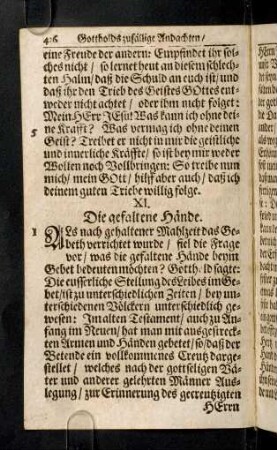 406 Gottholds zufällige Andachten/
eine Freude der andern: Empfindet ihr sol-
ches nicht/ so lernet heut an diesem schlech-
ten Halm/ daß die Schuld an euch ist/ und
daß ihr den Trieb des Geistes GOttes ent-
weder nicht achtet/ oder ihm nicht folget:
Mein HErr JEsu! Was kann ich ohne dei-
5 ne Krafft? Was vermag ich ohne deinen
Geist? Treibet er nicht in mir die geistliche
und innerliche Kräffte/ so ist bey mir weder
Wollen noch Vollbringen: So treibe nun
mich/ mein GOtt/ hilff aber auch/ daß ich
deinem guten Triebe willig folge.
XI.
Die gefaltene Hände.
1 ALs nach gehaltener Mahlzeit das Ge-
beth verrichtet wurde/ fiel die Frage
vor/ was die gefaltene Hände beym
Gebet bedeuten möchten? Gotth. sagte:
Die eusserliche Stellung des Leibes im Ge-
bet/ ist zu unterschiedlichen Zeiten/ bey un-
terschiedenen Völckern unterschiedlich ge-
wesen: Im alten Testament/ auch zu An-
fang im Neuen/ hat man mit ausgestreck-
ten Armen und Händen gebetet/ so/ daß der
Betende ein vollkommenes Creutz darge-
stellet/ welches nach der gottseligen Vä-
ter und anderer gelehrten Männer Aus-
legung/ zur Erinnerung des gecreutzigten
HErrn